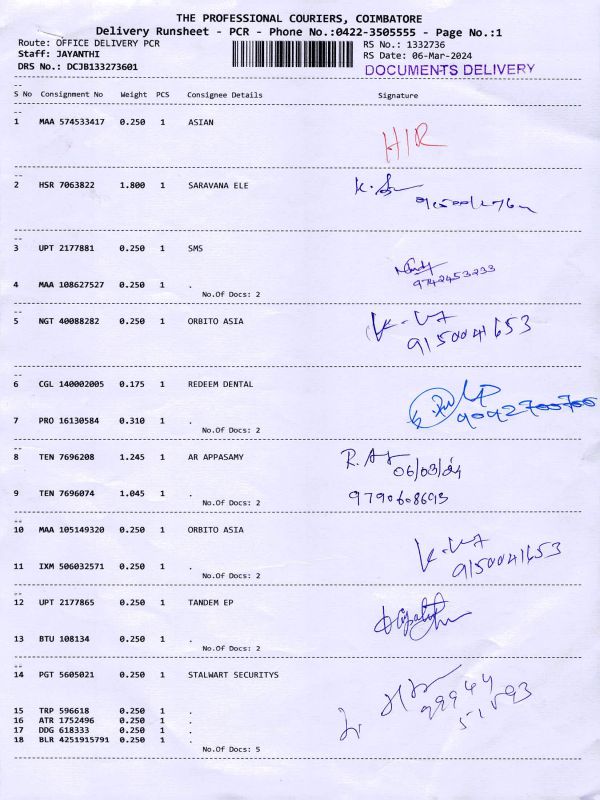 THE PROFESSIONAL COURIERS, COIMBATORE
Delivery Runsheet - PCR - Phone No.:0422-3505555 - Page No.:1
Route: OFFICE DELIVERY PCR RS No.: 1332736
Staff: JAYANTHI RS Date: 06-Mar-2024
DRS No.: DCJB133273601 DOCUMENTS DELIVERY
S No Consignment No Weight PCS Consignee Details Signature
1 MAA 574533417 0.250 1 ASIAN
H/R
2 HSR 7063822 1.800 1 SARAVANA ELE
3 UPT 2177881 0.250 1 SMS
9742453233
4 MAA 108627527 0.250 1 .
No.Of Docs: 2
5 NGT 40088282 0.250 1 ORBITO ASIA
9150041653
6 CGL 140002005 0.175 1 REDEEM DENTAL
9092700700
7 PRO 16130584 0.310 1 .
No.Of Docs: 2
8 TEN 7696208 1.245 1 AR APPASAMY
06/03/24
9 TEN 7696074 1.045 1 . 9790608693
No.Of Docs: 2
10 MAA 105149320 0.250 1 ORBITO ASIA
9150041653
11 IXM 506032571 0.250 1 .
No.Of Docs: 2
12 UPT 2177865 0.250 1 TANDEM EP
13 BTU 108134 0.250 1 .
No.Of Docs: 2
14 PGT 5605021 0.250 1 STALWART SECURITYS
99944
15 TRP 596618 0.250 1 .
16 ATR 1752496 0.250 1 .
17 DDG 618333 0.250 1 .
18 BLR 4251915791 0.250 1 .
No.Of Docs: 5